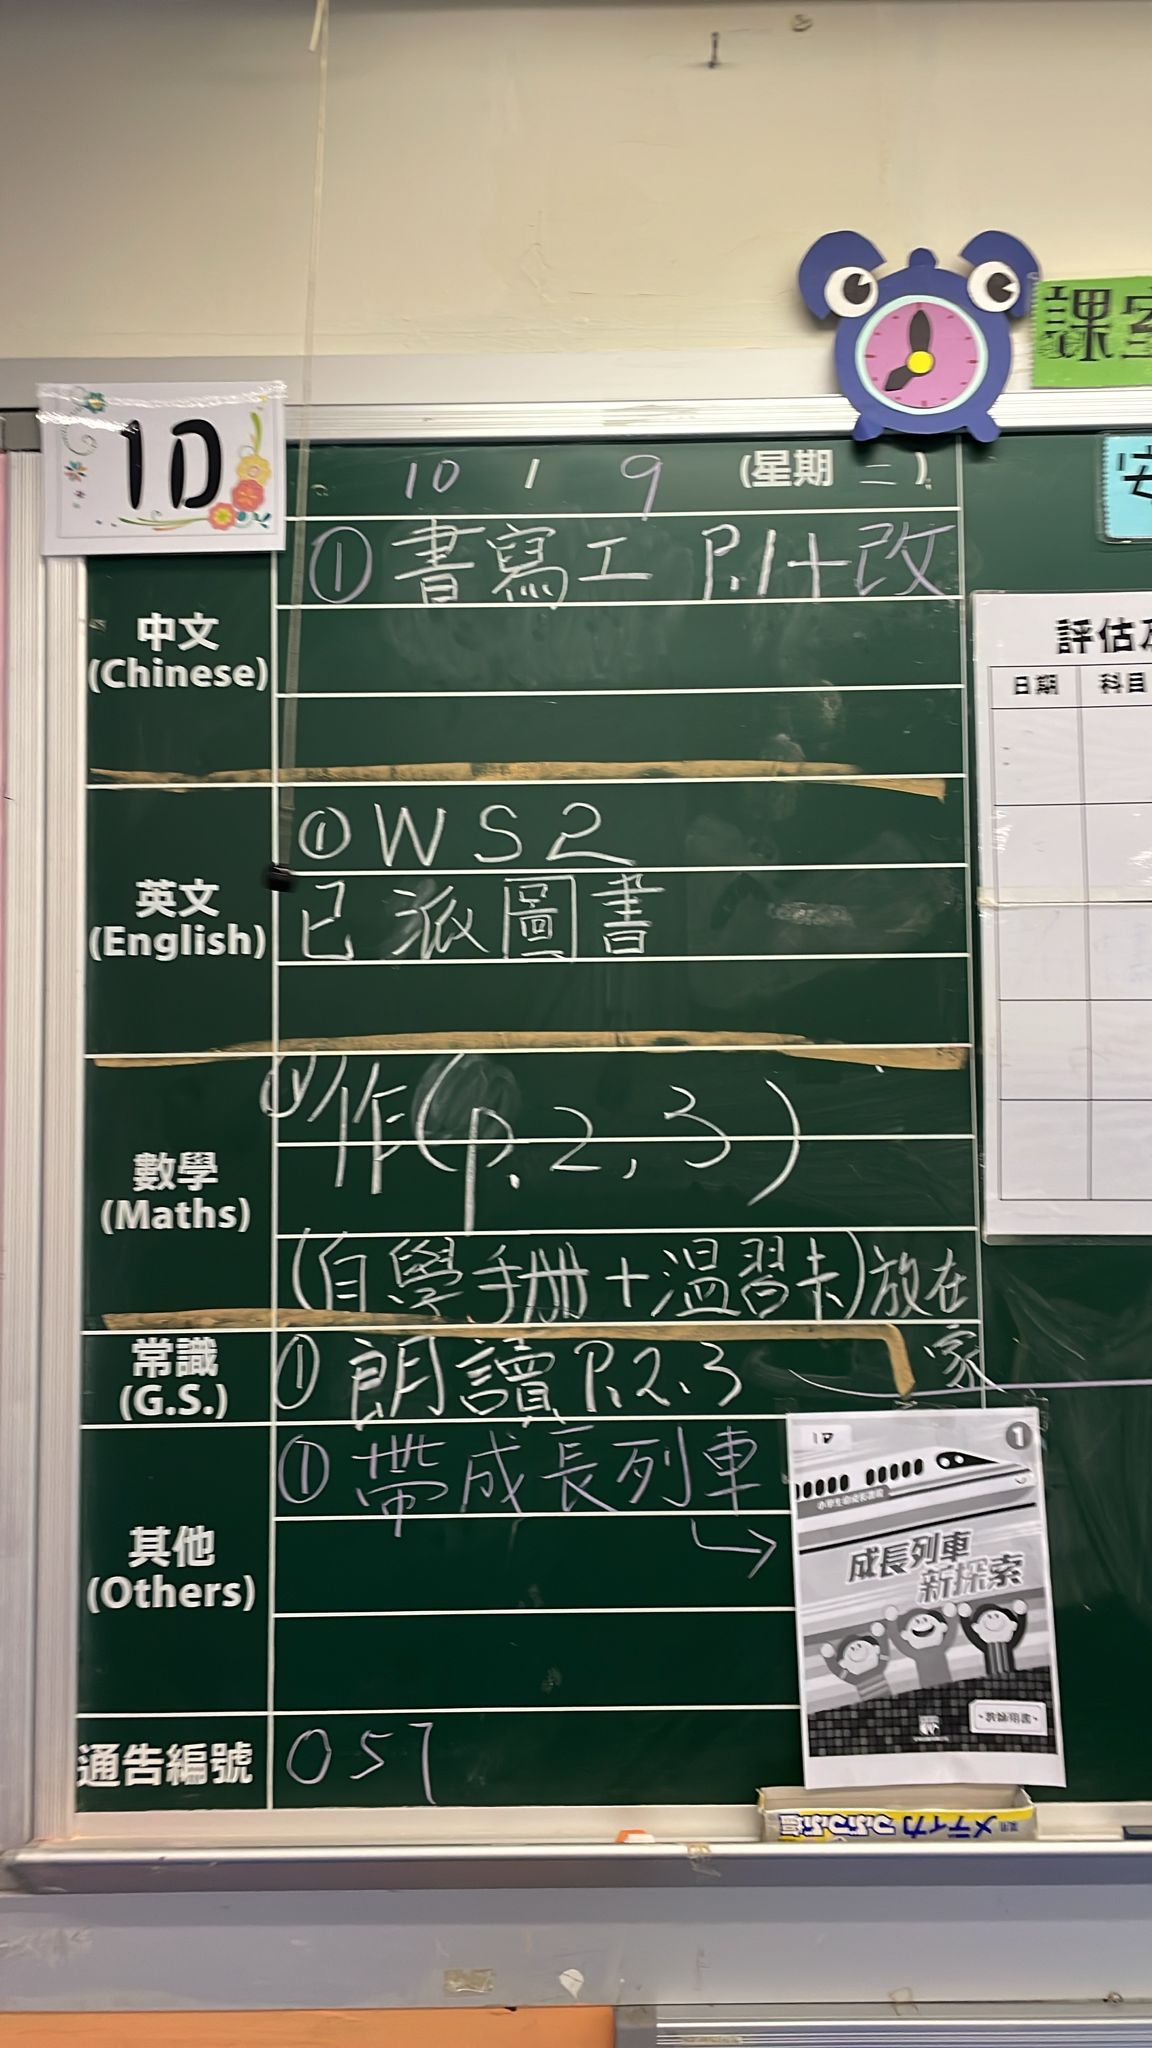 課室
1D
10 / 9 (星期 二)
安
中文
(Chinese)
① 書寫工 P.1+改
評估
日期 科目
英文
(English)
① WS2
已派圖書
數學
(Maths)
① 作(p.2,3)
(自學手冊+溫習卡)放在家
常識
(G.S.)
① 朗讀 P.2.3
其他
(Others)
① 帶成長列車
1D
1
成長列車
新探索
通告編號
057
メディカ つぶつぶ塩